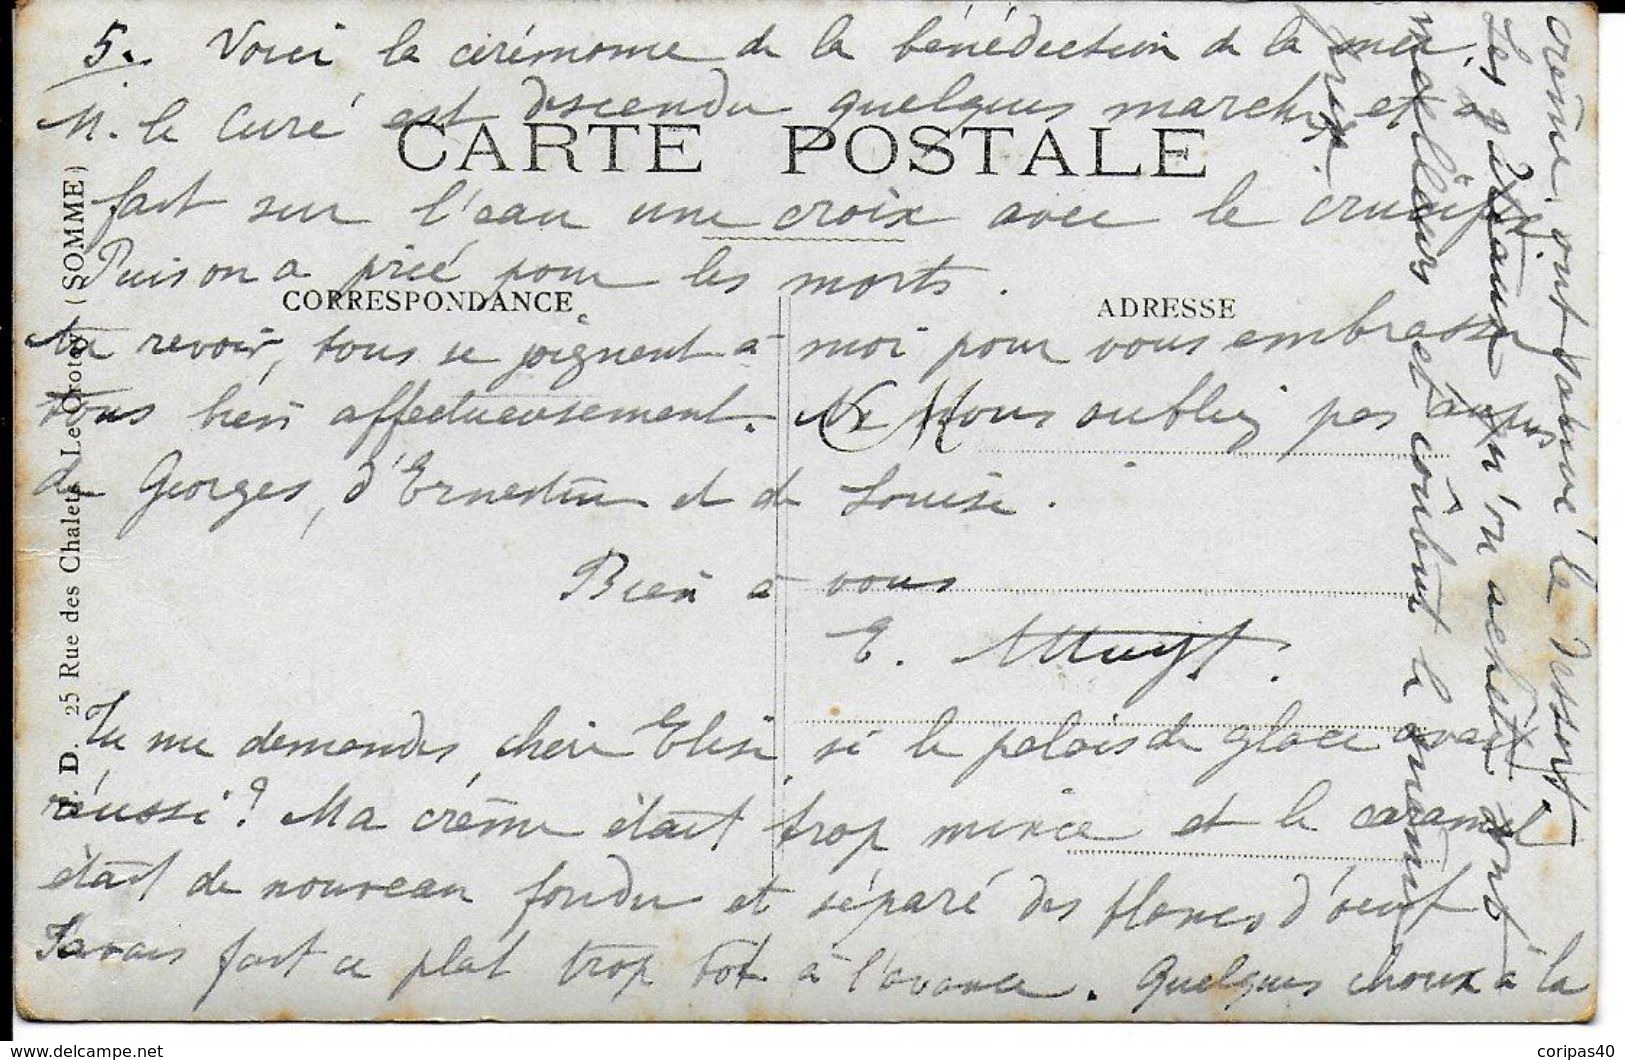 5. Voici la cérémonie de la bénédiction de la mer.
M. le Curé est descendu quelques marches et a
CARTE POSTALE
fait sur l'eau une croix avec le crucifix
Puis on a prié pour les morts.
CORRESPONDANCE
ADRESSE
Au revoir, tous se joignent à moi pour vous embrasser
tous bien affectueusement. Ne nous oubliez pas auprès
de Georges, d'Ernestine et de Louise.
Bien à vous
E.
Tu me demandes, chère Elise, si le palais de glace avait
réussi? Ma crème était trop mince et le caramel
était de nouveau fondu et séparé des blancs d'oeuf
J'avais fait ce plat trop tôt à l'avance. Quelques choux à la
crème ont terminé le dessert.
Les gâteaux qu'on achète sont
meilleurs et coûtent le même
prix.
J. D. 25 Rue des Chalets Le Crotoy (SOMME)
www.delcampe.net
coripas40